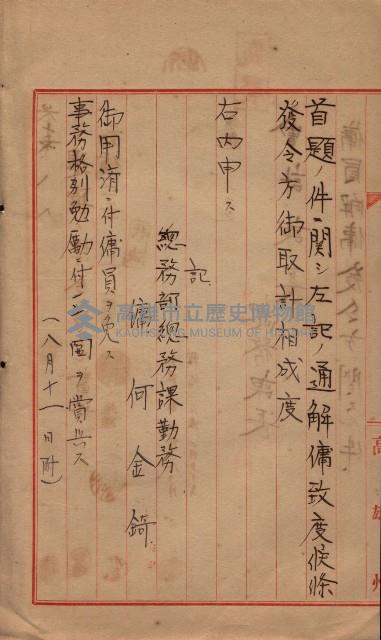 首題ノ件ニ関シ左記ノ通解傭致度候條
發令方御取計相成度
右内申ス
記
總務部總務課勤務
傭 何金錡
御用済ニ付傭員ヲ免ス
事務格別勉勵ニ付 圓ヲ賞與ス
(八月十一日附)
高雄州
高雄市立歷史博物館
KAOHSIUNG MUSEUM OF HISTORY